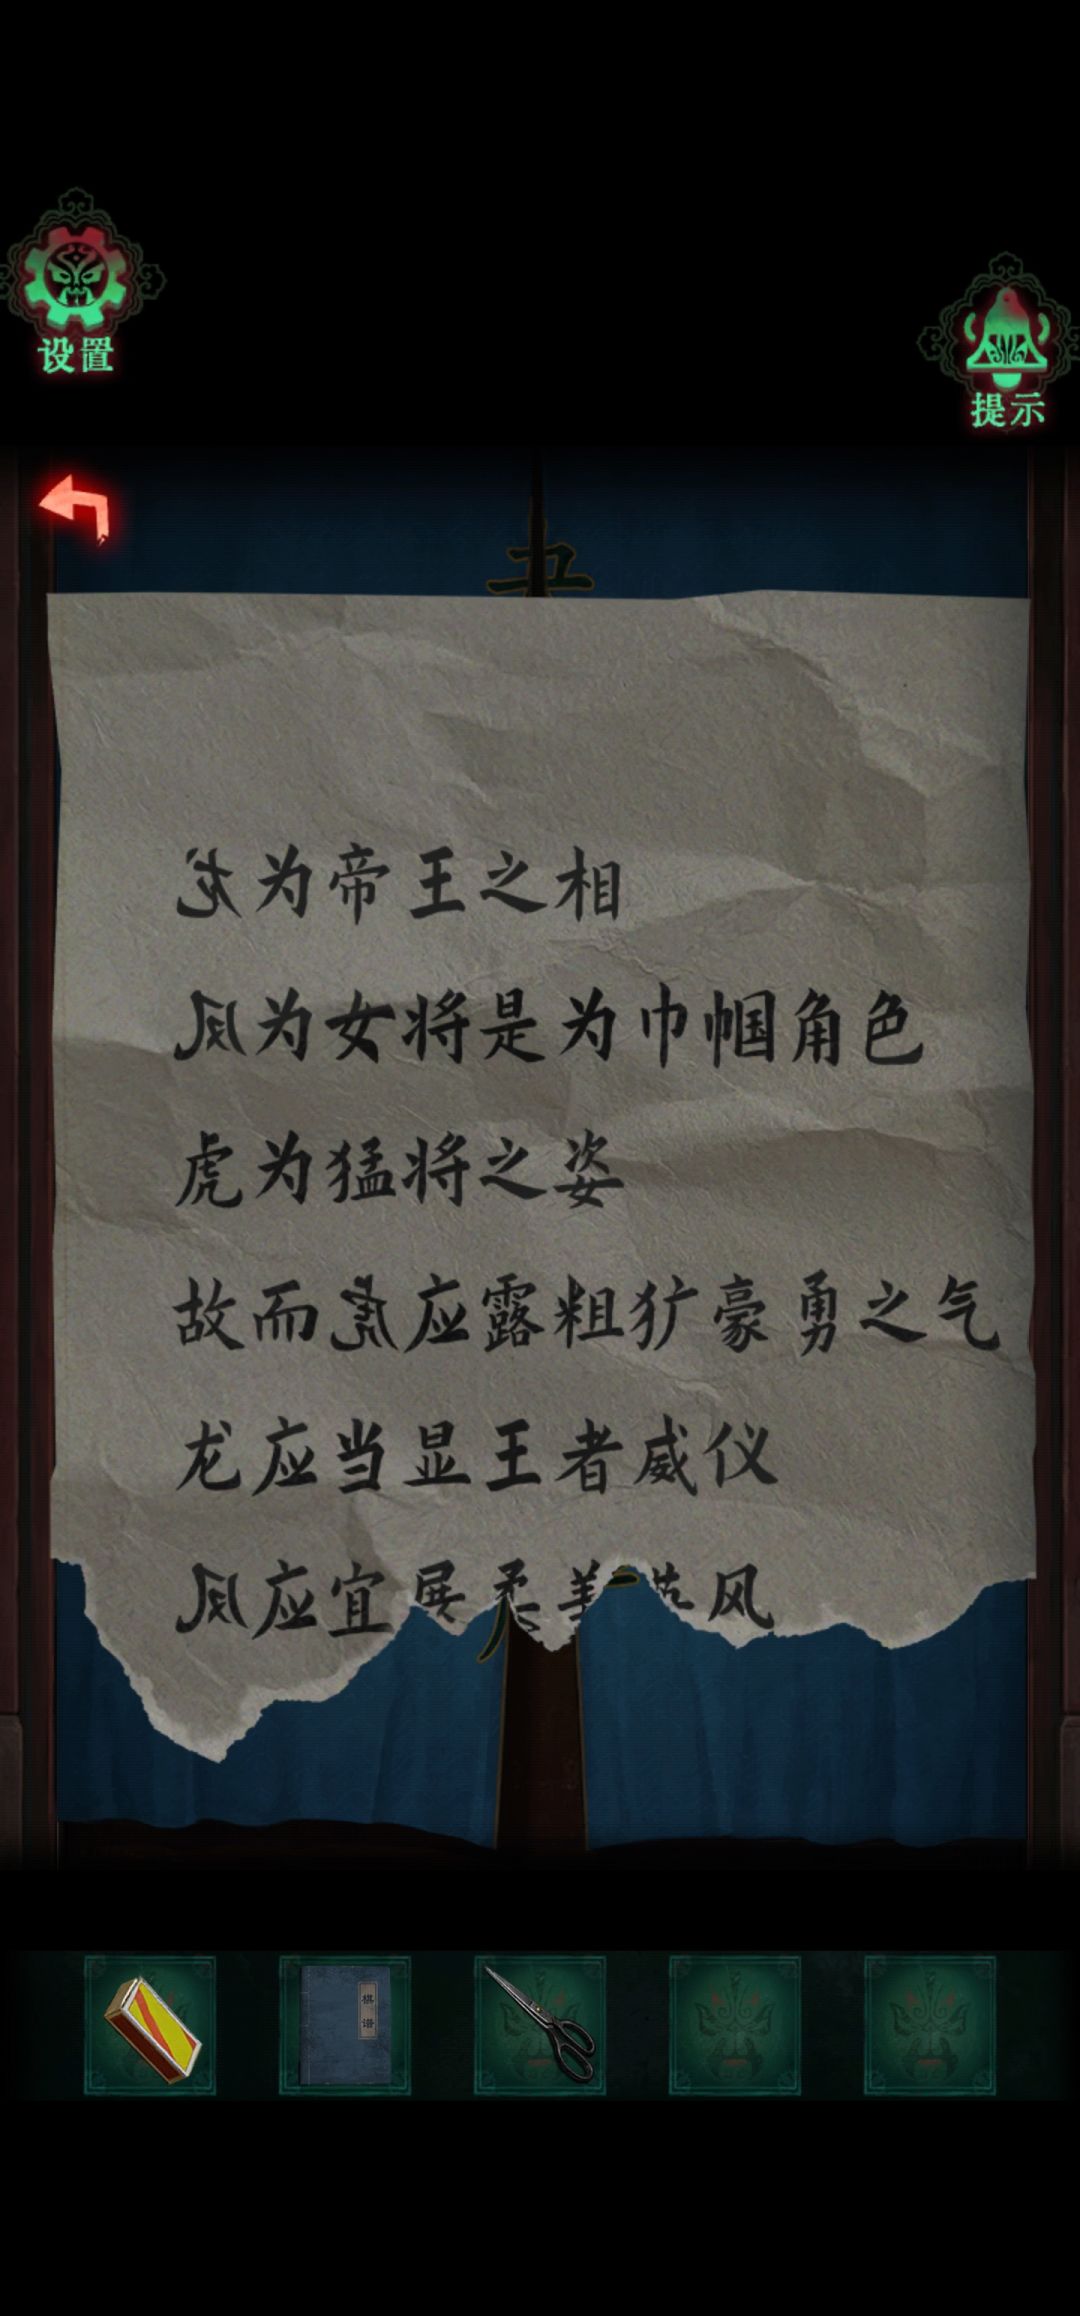 设置
提示
龙为帝王之相
凤为女将是为巾帼角色
虎为猛将之姿
故而虎应露粗犷豪勇之气
龙应当显王者威仪
凤应宜展柔美风
棋谱